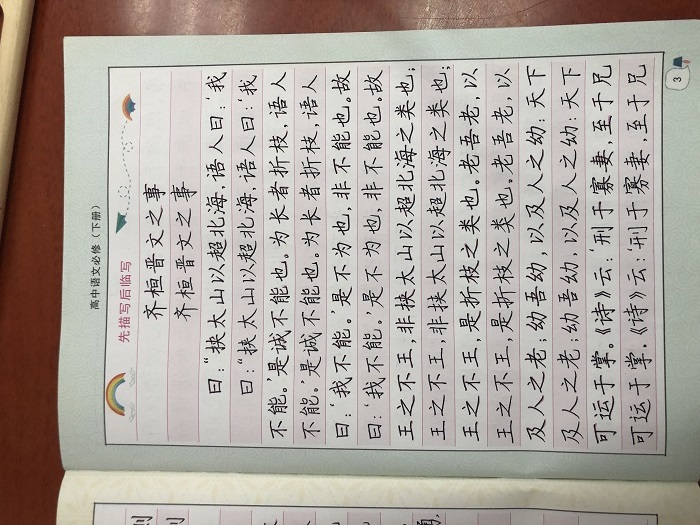 高中语文必修（下册）
先描写后临写
齐桓晋文之事
齐桓晋文之事
曰：“挟太山以超北海，语人曰：‘我
曰：“挟太山以超北海，语人曰：‘我
不能。’是诚不能也。为长者折枝，语人
不能。’是诚不能也。为长者折枝，语人
曰：‘我不能。’是不为也，非不能也。故
曰：‘我不能。’是不为也，非不能也。故
王之不王，非挟太山以超北海之类也；
王之不王，非挟太山以超北海之类也；
王之不王，是折枝之类也。老吾老，以
王之不王，是折枝之类也。老吾老，以
及人之老；幼吾幼，以及人之幼：天下
及人之老；幼吾幼，以及人之幼：天下
可运于掌。《诗》云：‘刑于寡妻，至于兄
可运于掌。《诗》云：‘刑于寡妻，至于兄
3